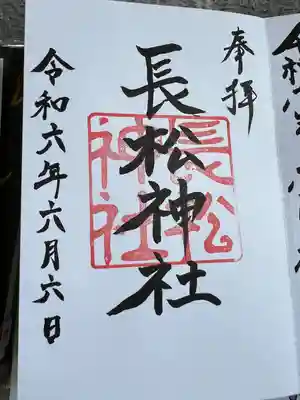 奉拝
長松神社
長松
神社
令和六年六月六日